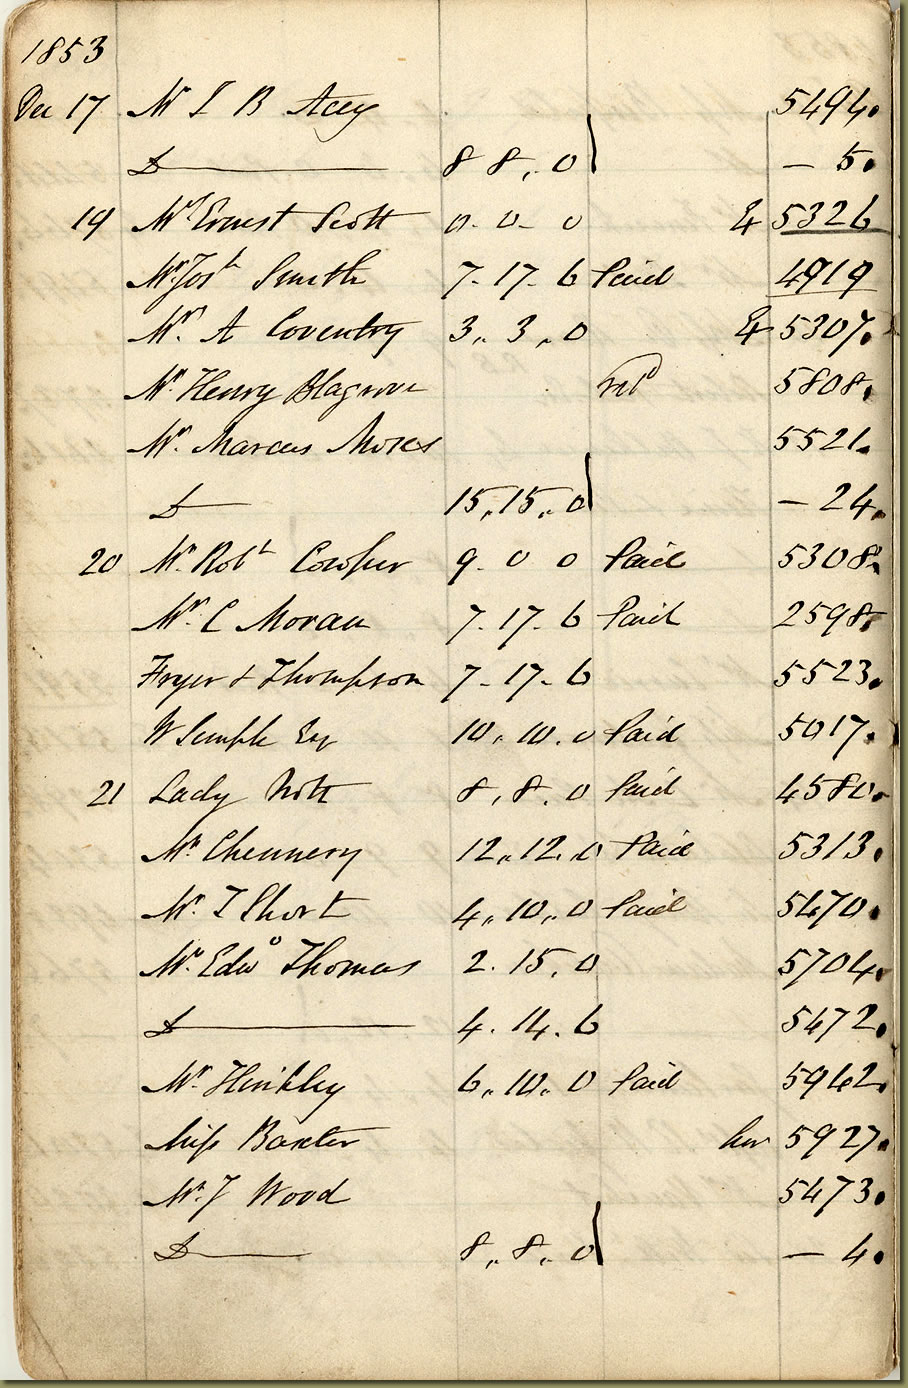 1853
Dec 17 Mr I B Acey 5494.
Do 8 8 „ 0 — 5.
19 Mr Ernest Scott 0 - 0 - 0 & 5326
Mr Josh Smith 7 - 17 - 6 Paid 4919
Mr. A Coventry 3 „ 3 „ 0 & 5307.
Mr Henry Blagrove retd 5808.
Mr. Marcus Moses 5521.
Do 15 „ 15 „ 0 — 24.
20 Mr. Robt Cowper 9 - 0 0 Paid 5308.
Mr. C Moran 7 - 17 - 6 Paid 2598.
Fryer & Thompson 7 - 17 - 6 5523.
W Semple Esq 10 „ 10 „ 0 Paid 5017.
21 Lady Nott 8 „ 8 . 0 Paid 4580.
Mr Chennery 12 „ 12 „ 0 Paid 5313.
Mr. I Short 4 „ 10 „ 0 Paid 5470.
Mr. Edwo Thomas 2 . 15 . 0 5704.
Do 4 . 14 . 6 5472.
Mr Hinkley 6 „ 10 . 0 Paid 5942.
Miss Baxter hw 5927.
Mr. J Wood 5473.
Do 8 „ 8 . 0 — 4.